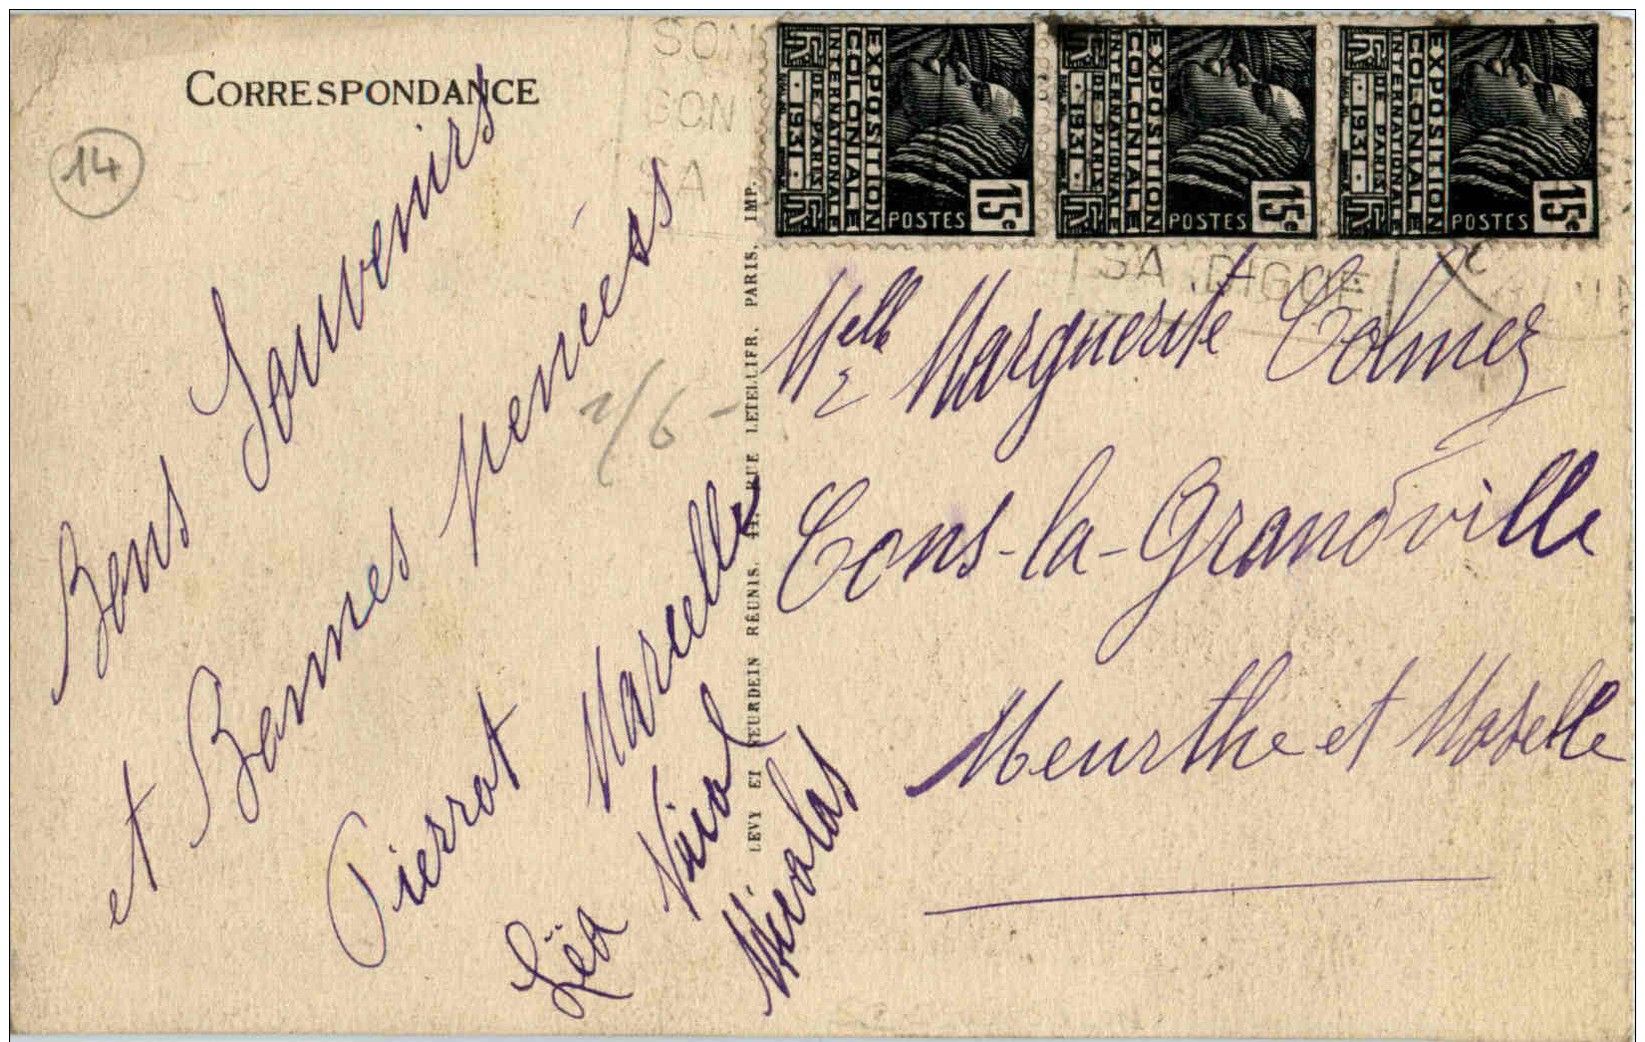 CORRESPONDANCE
14
Bons Souvenirs
et Bonnes pensées
Pierrot Marcelle
Léa
Nicolas
2/6-
LEVY ET NEURDEIN RÉUNIS, 44, RUE LETELLIER, PARIS. IMP.
SON
SON
SA
EXPOSITION
COLONIALE
INTERNATIONALE
DE PARIS
1931
POSTES
15c
EXPOSITION
COLONIALE
INTERNATIONALE
DE PARIS
1931
POSTES
15c
EXPOSITION
COLONIALE
INTERNATIONALE
DE PARIS
1931
POSTES
15c
SA DIGUE
Melle Marguerite Colmez
Cons-la-Grandville
Meurthe et Moselle